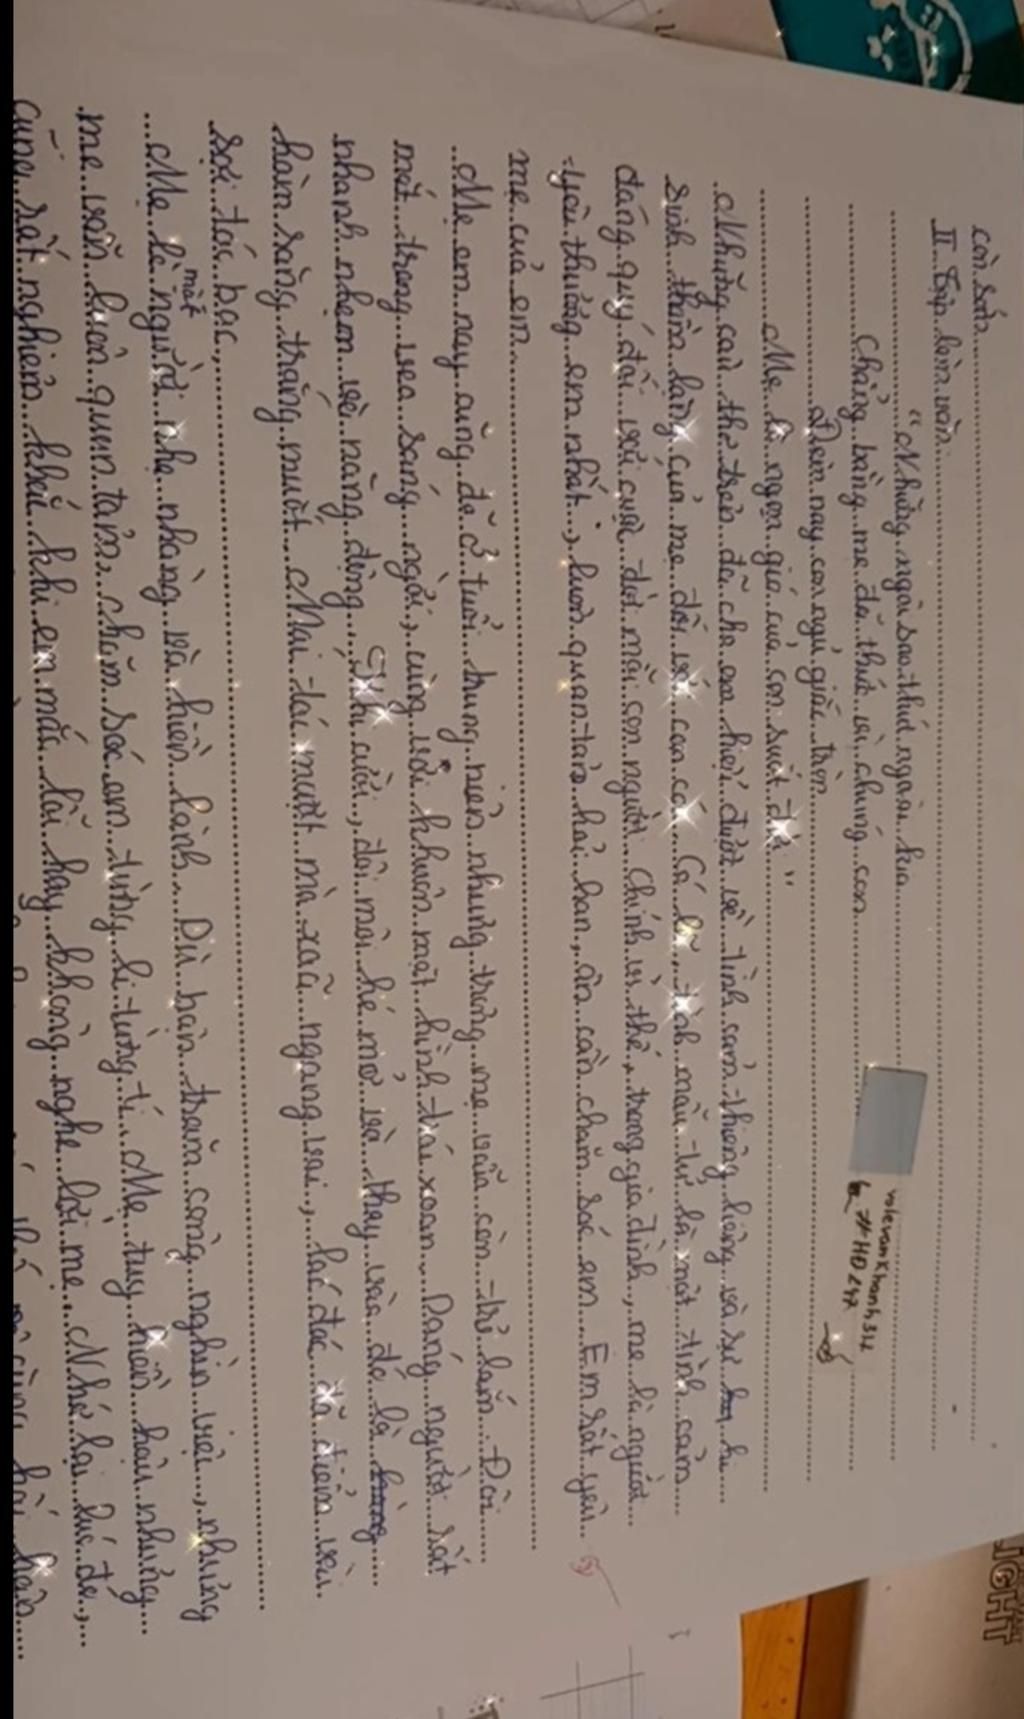 còn sớm
II. Tập làm văn
"Những ngôi sao thức ngoài kia
Chẳng bằng mẹ đã thức vì chúng con
Đêm nay con ngủ giấc tròn
Mẹ là ngọn gió của con suốt đời"
Những câu thơ trên đã cho em hiểu được về tình cảm thiêng liêng và sự hi
sinh thầm lặng của mẹ đối với con cái. Có lẽ, tình mẫu tử là một tình cảm
đáng quý đối với cuộc đời mỗi con người. Chính vì thế, trong gia đình, mẹ là người
yêu thương em nhất, luôn quan tâm hỏi han, ân cần chăm sóc em. Em rất yêu
mẹ của em.
Mẹ em nay cũng đã ở tuổi trung niên nhưng trông mẹ vẫn còn trẻ lắm. Đôi
mắt trong veo sáng ngời, cùng với khuôn mặt hình trái xoan. Dáng người rất
nhanh nhẹn và năng động. Khi cười, đôi môi hé mở và thay vào đó là
hàm răng trắng muốt. Mái tóc mượt mà xoã ngang vai, lác đác đã điểm vài
sợi tóc bạc.
Mẹ là một người nhẹ nhàng và hiền lành. Dù bận trăm công nghìn việc, nhưng
mẹ vẫn luôn quan tâm chăm sóc em từng li từng tí. Mẹ tuy hiền hậu nhưng
cũng rất nghiêm khắc khi em mắc lỗi hay không nghe lời mẹ. Nhớ lại lúc đó,
volevankhanh342
6a #HD247